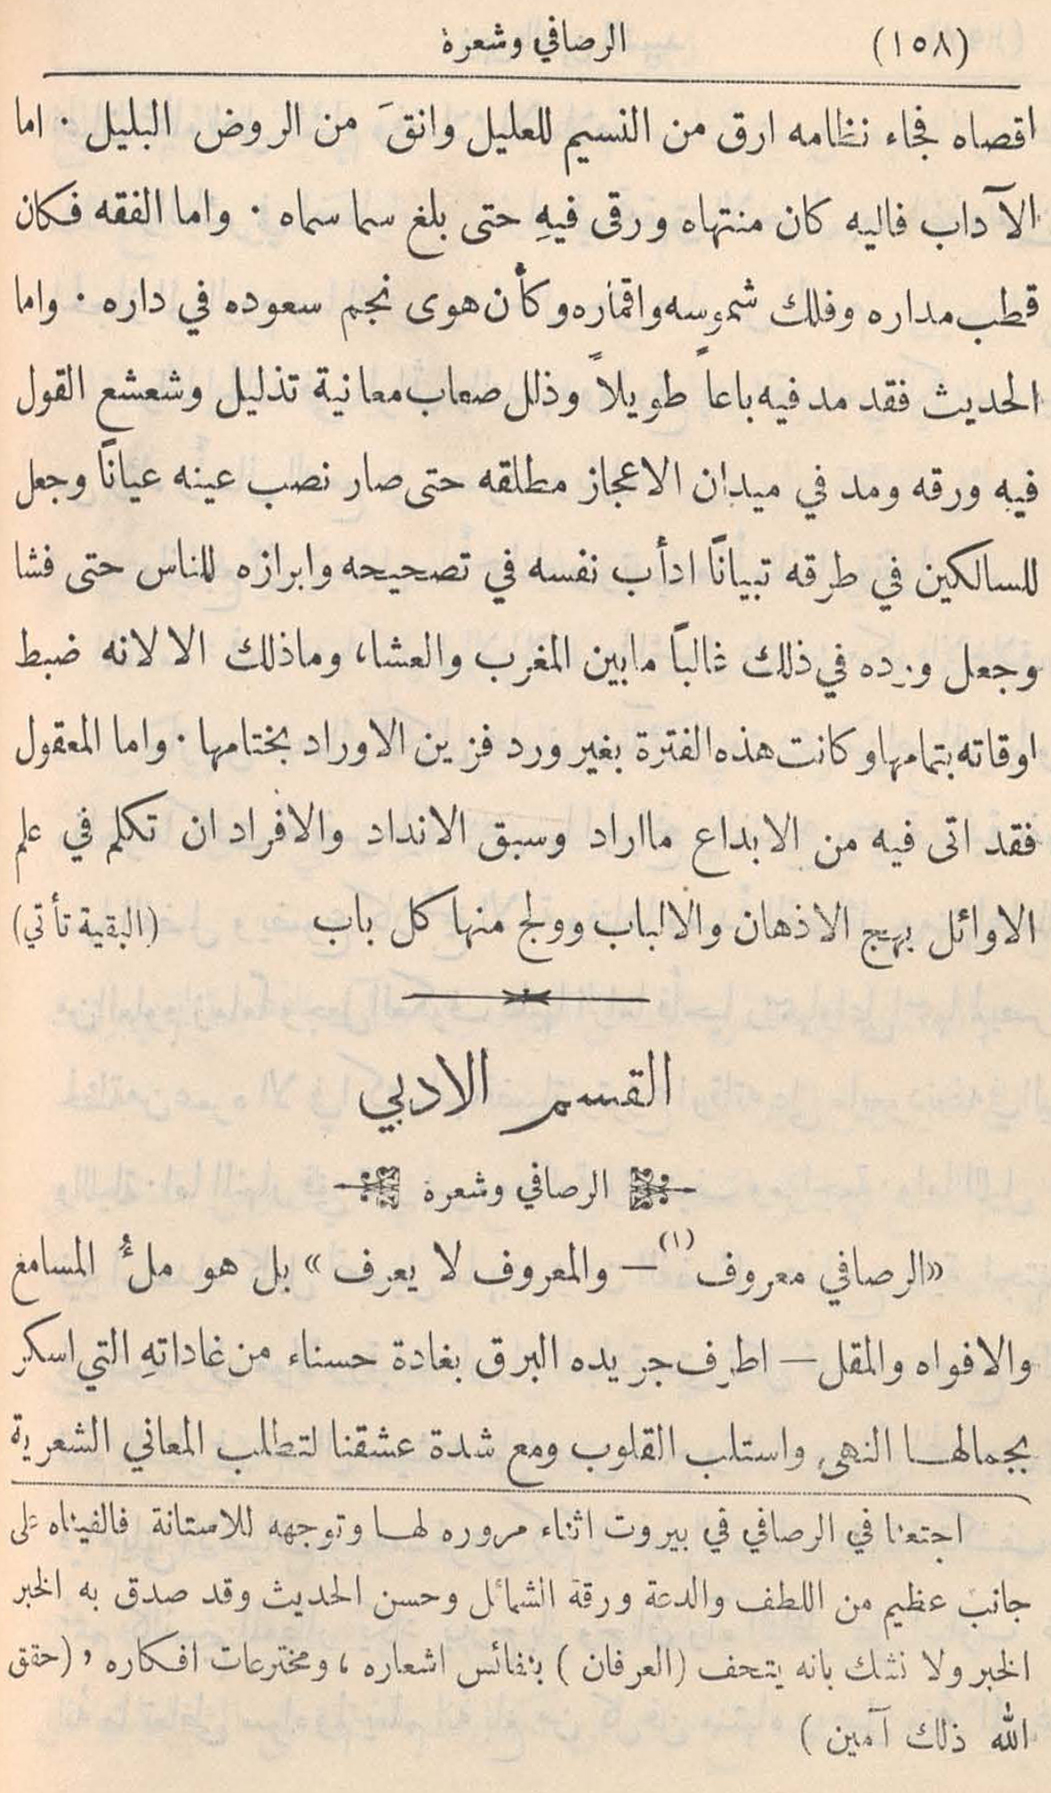 (١٥٨) الرصافي وشعرة
اقصاه فجاء نظامه ارق من النسيم للعليل وانقَ من الروض البليل ٠ اما
الآداب فاليه كان منتهاه ورقى فيهِ حتى بلغ سما سماه ٠ واما الفقه فكان
قطب مداره وفلك شموسه واقماره وكأن هوى نجم سعوده في داره ٠ واما
الحديث فقد مد فيه باعاً طويلاً وذلل صعاب معانية تذليل وشعشع القول
فيه ورقه ومد في ميدان الاعجاز مطلقه حتى صار نصب عينه عياناً وجعل
للسالكين في طرقه تبياناً ادأب نفسه في تصحيحه وابرازه للناس حتى فشا
وجعل ورده في ذلك غالباً مابين المغرب والعشاء وماذلك الا لانه ضبط
اوقاته بتمامها وكانت هذه الفترة بغير ورد فزين الاوراد بختامها ٠ واما المعقول
فقد اتى فيه من الابداع مااراد وسبق الانداد والافراد ان تكلم في علم
الاوائل بهج الاذهان والالباب وولج منها كل باب (البقية تأتي)
القسم الادبي
الرصافي وشعرة
«الرصافي معروف (١) — والمعروف لا يعرف» بل هو ملءُ المسامع
والافواه والمقل — اطرف جريده البرق بغادة حسناء من غاداتهِ التي اسكر
بجمالها النهى واستلب القلوب ومع شدة عشقنا لتطلب المعاني الشعرية
اجتمعنا في الرصافي في بيروت اثناء مروره لها وتوجهه للاستانة فالفيناه على
جانب عظيم من اللطف والدعة ورقة الشمائل وحسن الحديث وقد صدق به الخبر
الخبر ولا نشك بانه يتحف (العرفان) بنفائس اشعاره ، ومخترعات افكاره ، (حقق
الله ذلك آمين)